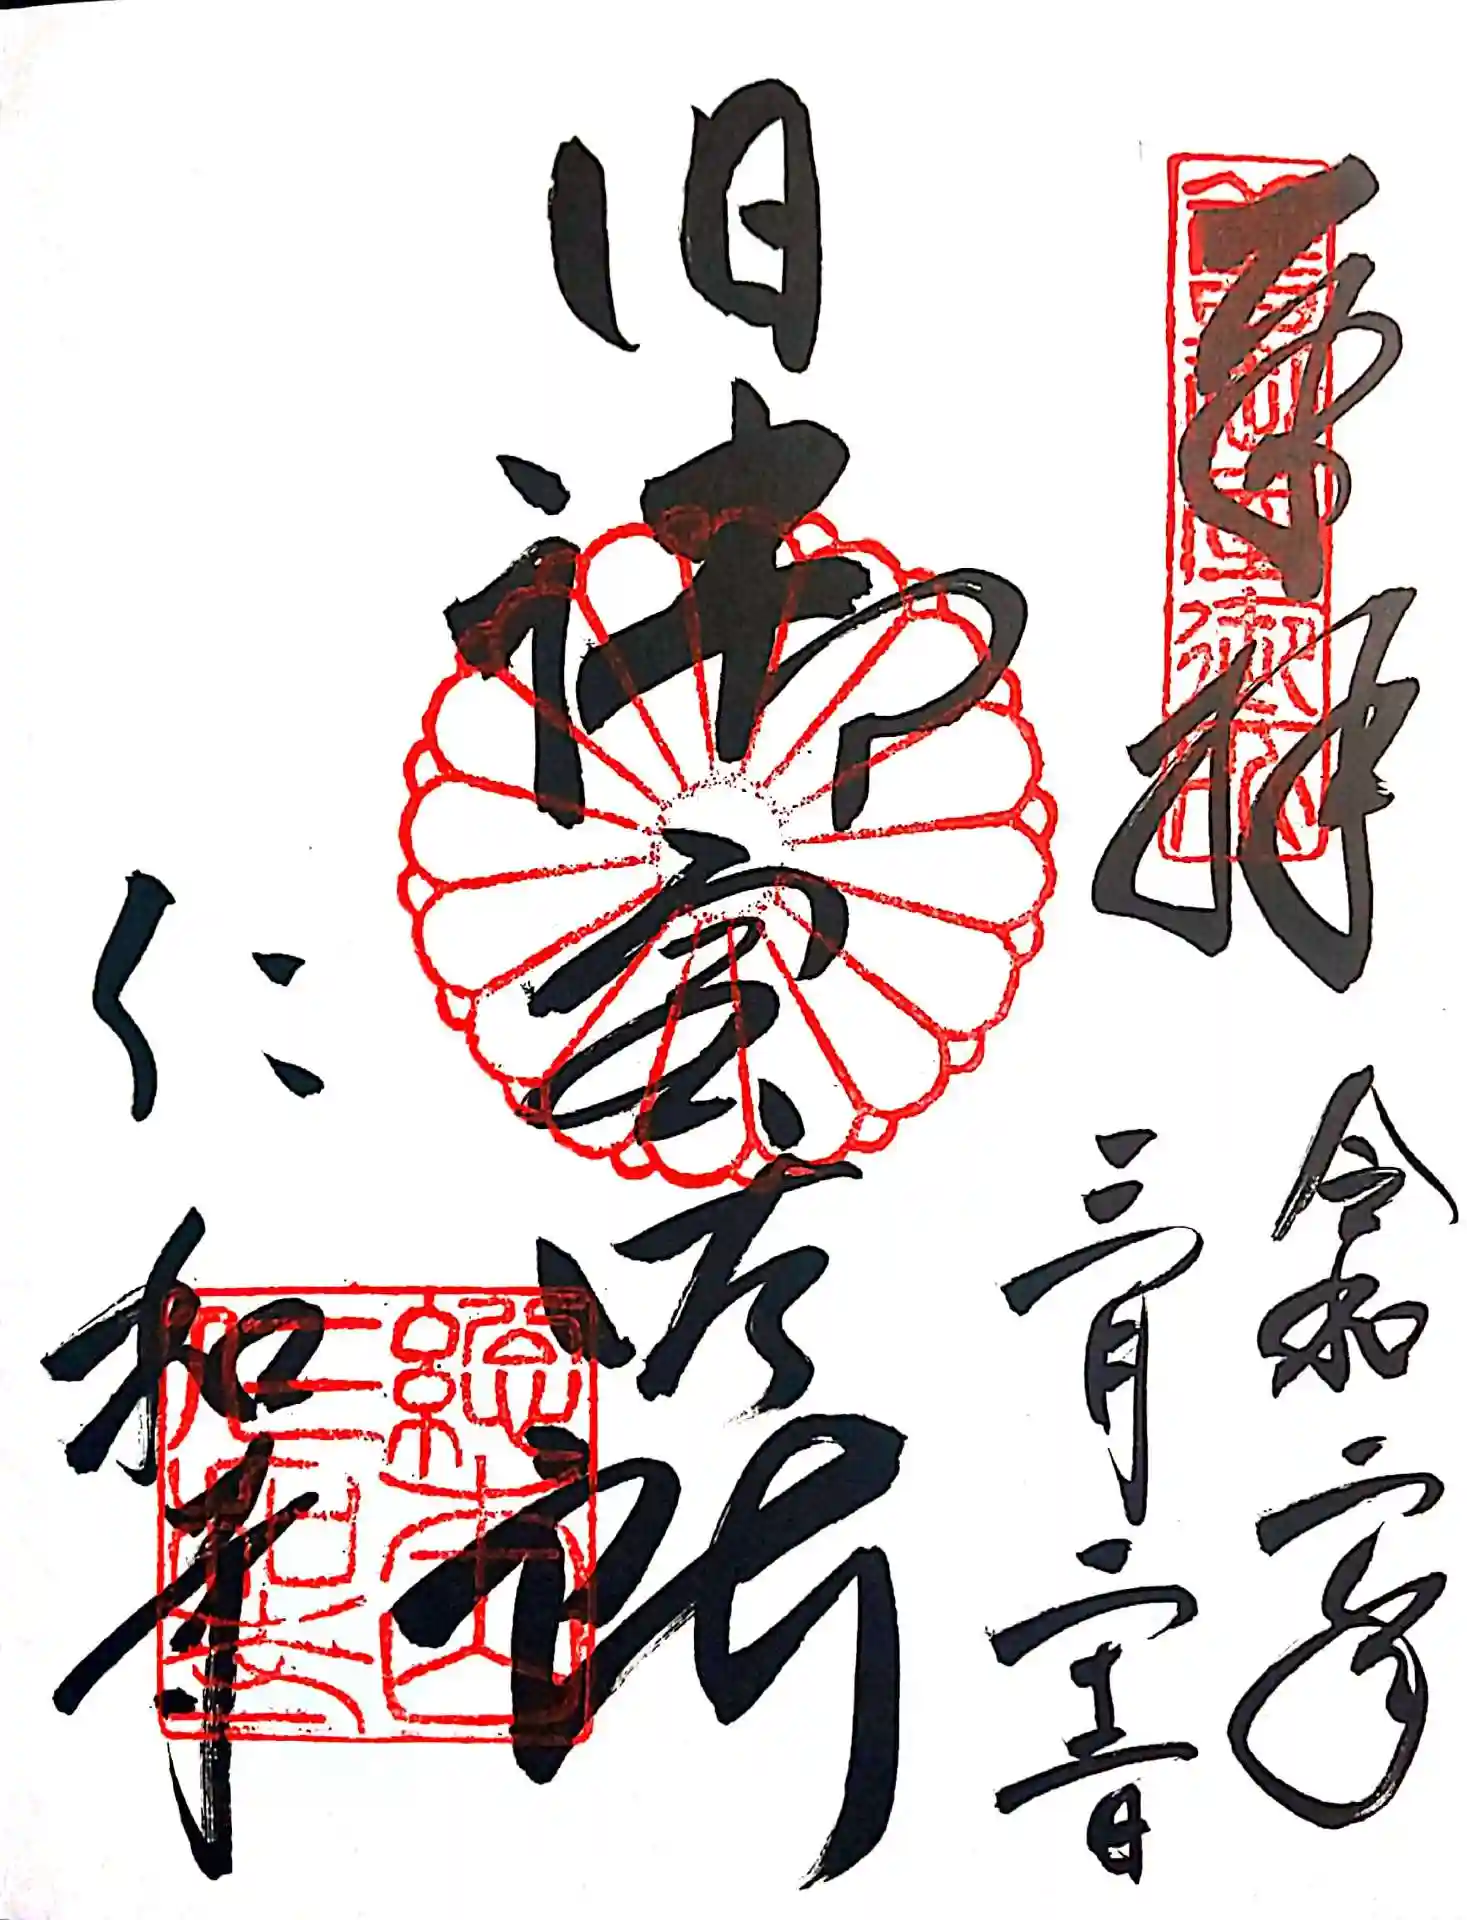 奉拝
令和二年
三月二十一日
旧御室御所
仁和寺
總本山
仁和寺